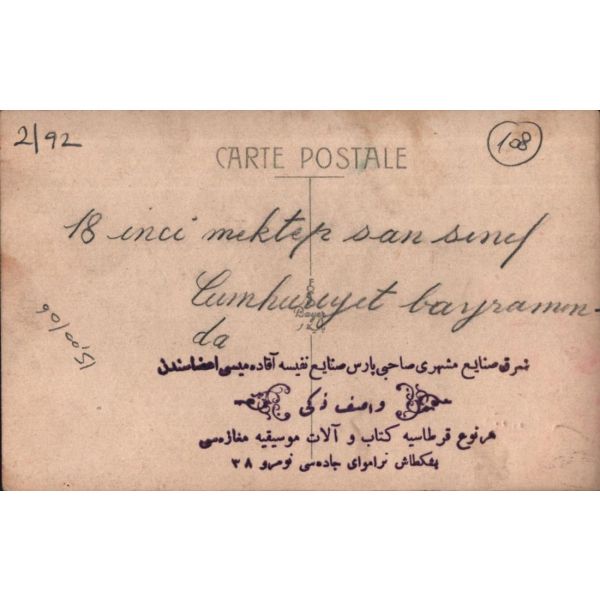 2/92
108
CARTE POSTALE
18 inci mektep san sınıf
Cumhuriyet bayramın-
da
Bayer
15,00/06
صنایع مشهری صاحبی پارس صنایع نفیسه آقاده میسی اعضاسندن
واصف ذکی
هر نوع قرطاسیه کتاب و آلات موسیقیه مغازه سی
بشكطاش تراموای جاده سی نومرو ٣٨